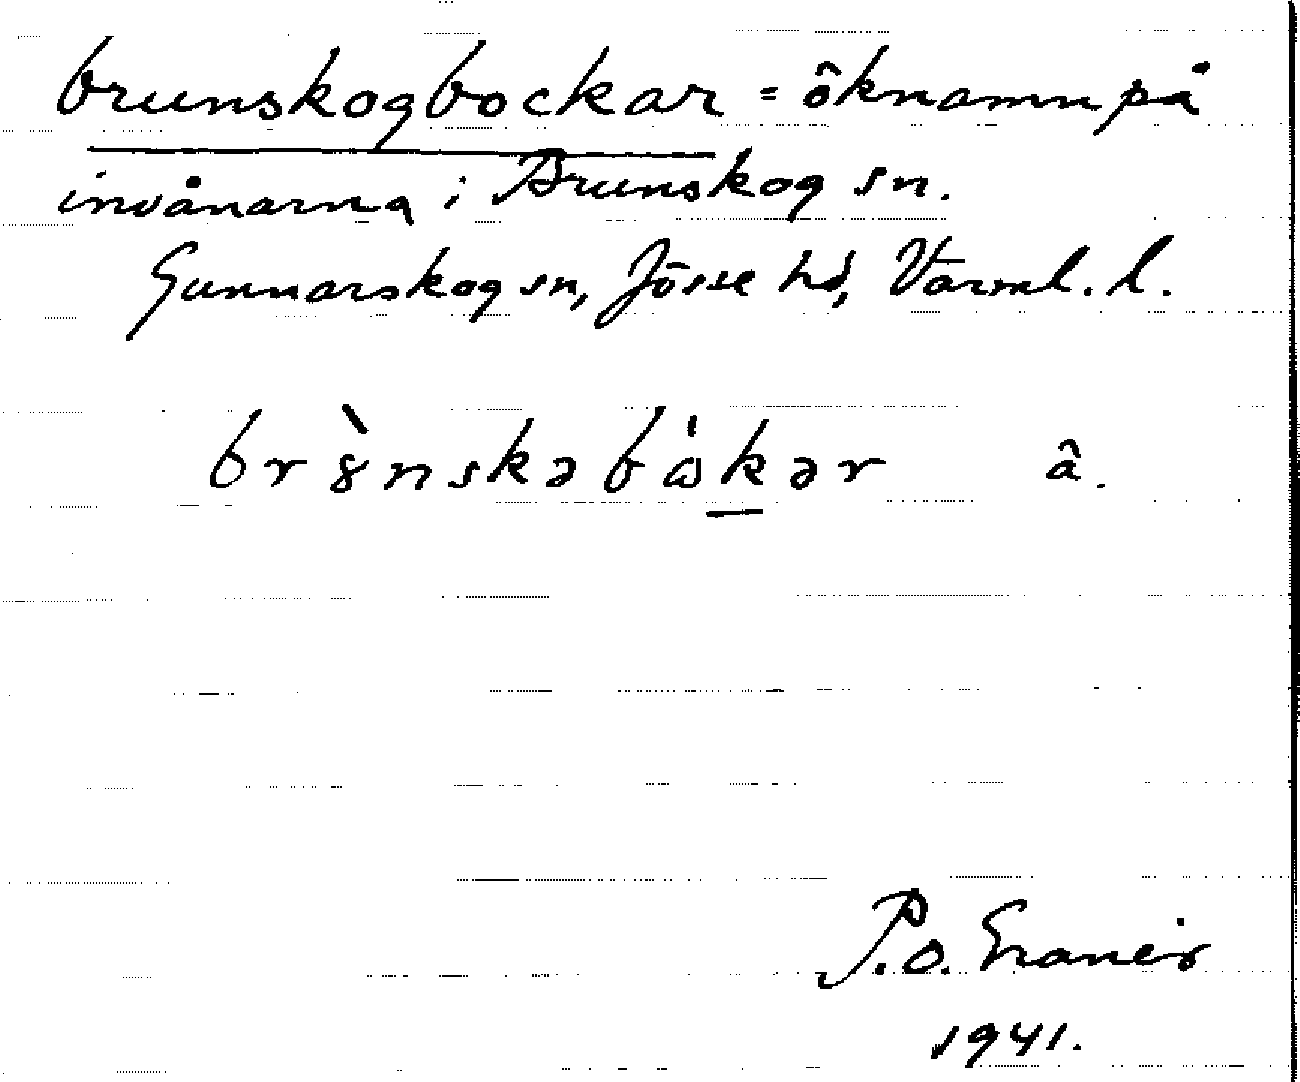 brunskogbockar = öknamn på
invånarna i Brunskog sn.
Gunnarskog sn, Jösse hd, Värml. l.
br8̀nskəbɷ̍kər â.
P.O.
1941.